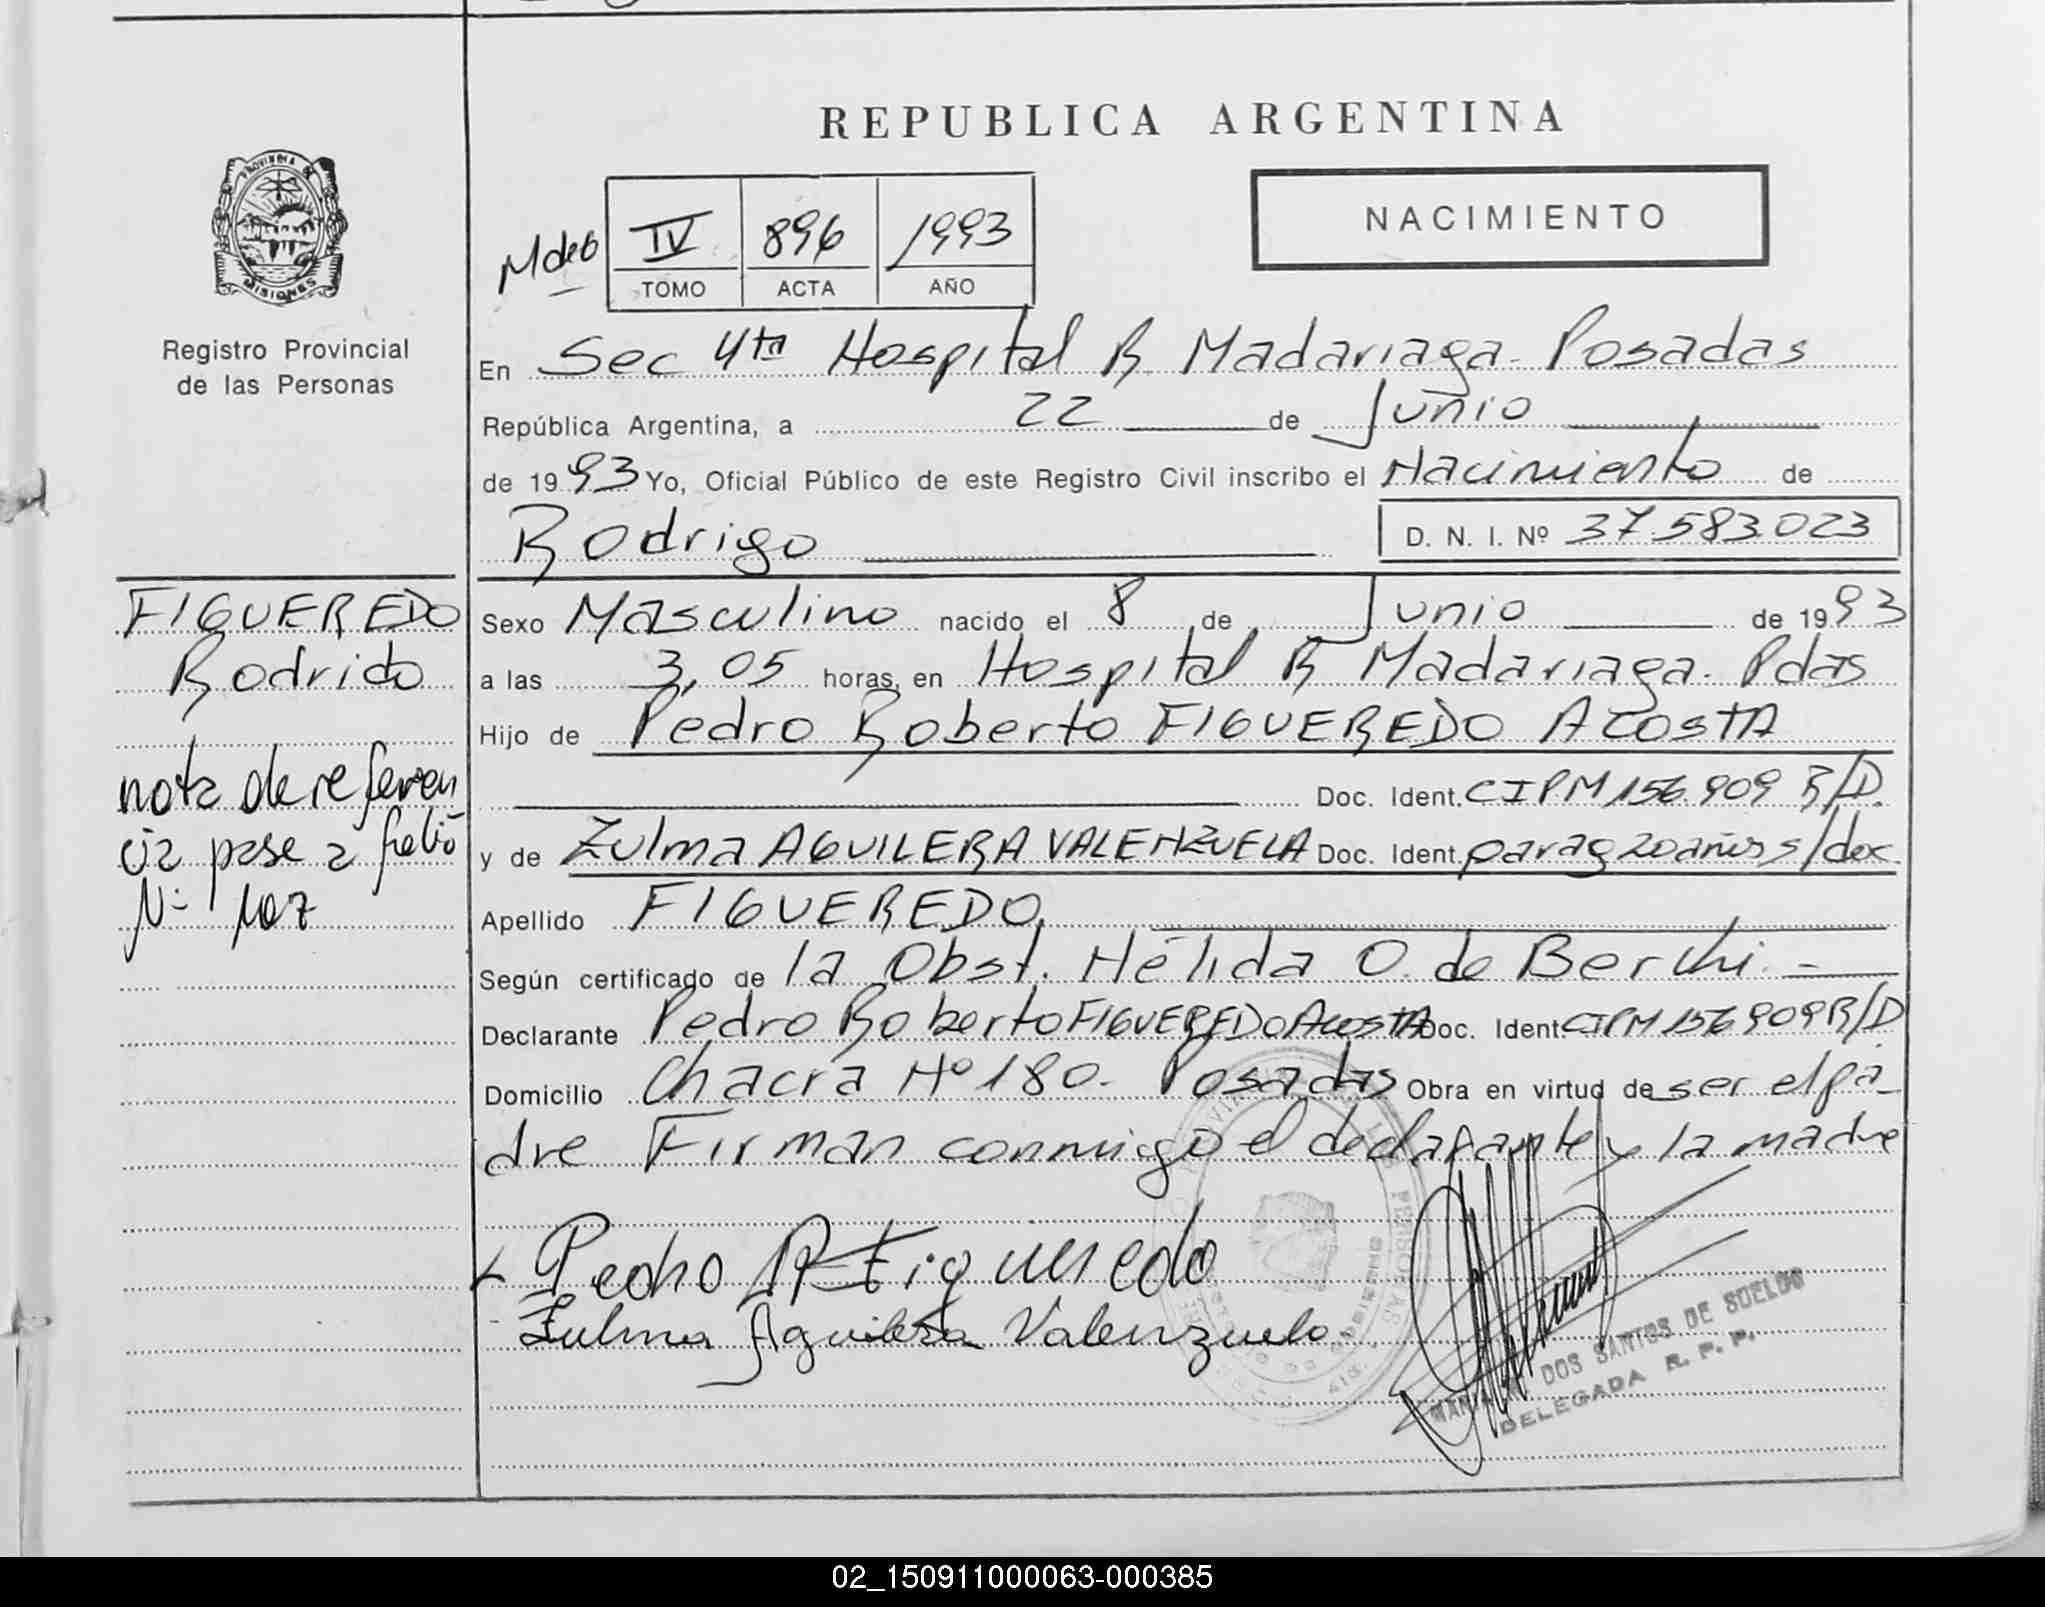 REPUBLICA ARGENTINA
NACIMIENTO
IV 896 1993
TOMO ACTA AÑO
PROVINCIA DE
MISIONES
Registro Provincial
de las Personas
En Sec 4ta Hospital R Madariaga - Posadas
República Argentina, a 22 de Junio
de 1993 Yo, Oficial Público de este Registro Civil inscribo el Nacimiento de
Rodrigo D. N. I. Nº 37.583.023
FIGUEREDO
Rodrido
nota de referen
cia pase a folio
Nº 107
Sexo Masculino nacido el 8 de Junio de 1993
a las 3,05 horas, en Hospital R Madariaga. Pdas
Hijo de Pedro Roberto FIGUEREDO ACOSTA
Doc. Ident. CIPM 156.909 R/D.
y de Zulma AGUILERA VALENZUELA Doc. Ident. parag 20 años s/doc.
Apellido FIGUEREDO
Según certificado de la Obst. Nélida O. de Berchi. -
Declarante Pedro Roberto FIGUEREDO ACOSTA Doc. Ident. CIPM 156909 R/D
Domicilio Chacra Nº 180. Posadas Obra en virtud de ser el pa-
dre Firman conmigo el declarante y la madre
Pedro R Figueredo
Zulma Aguilera Valenzuela
DOS SANTOS DE SUELDO
DELEGADA R. P. P.
02_150911000063-000385